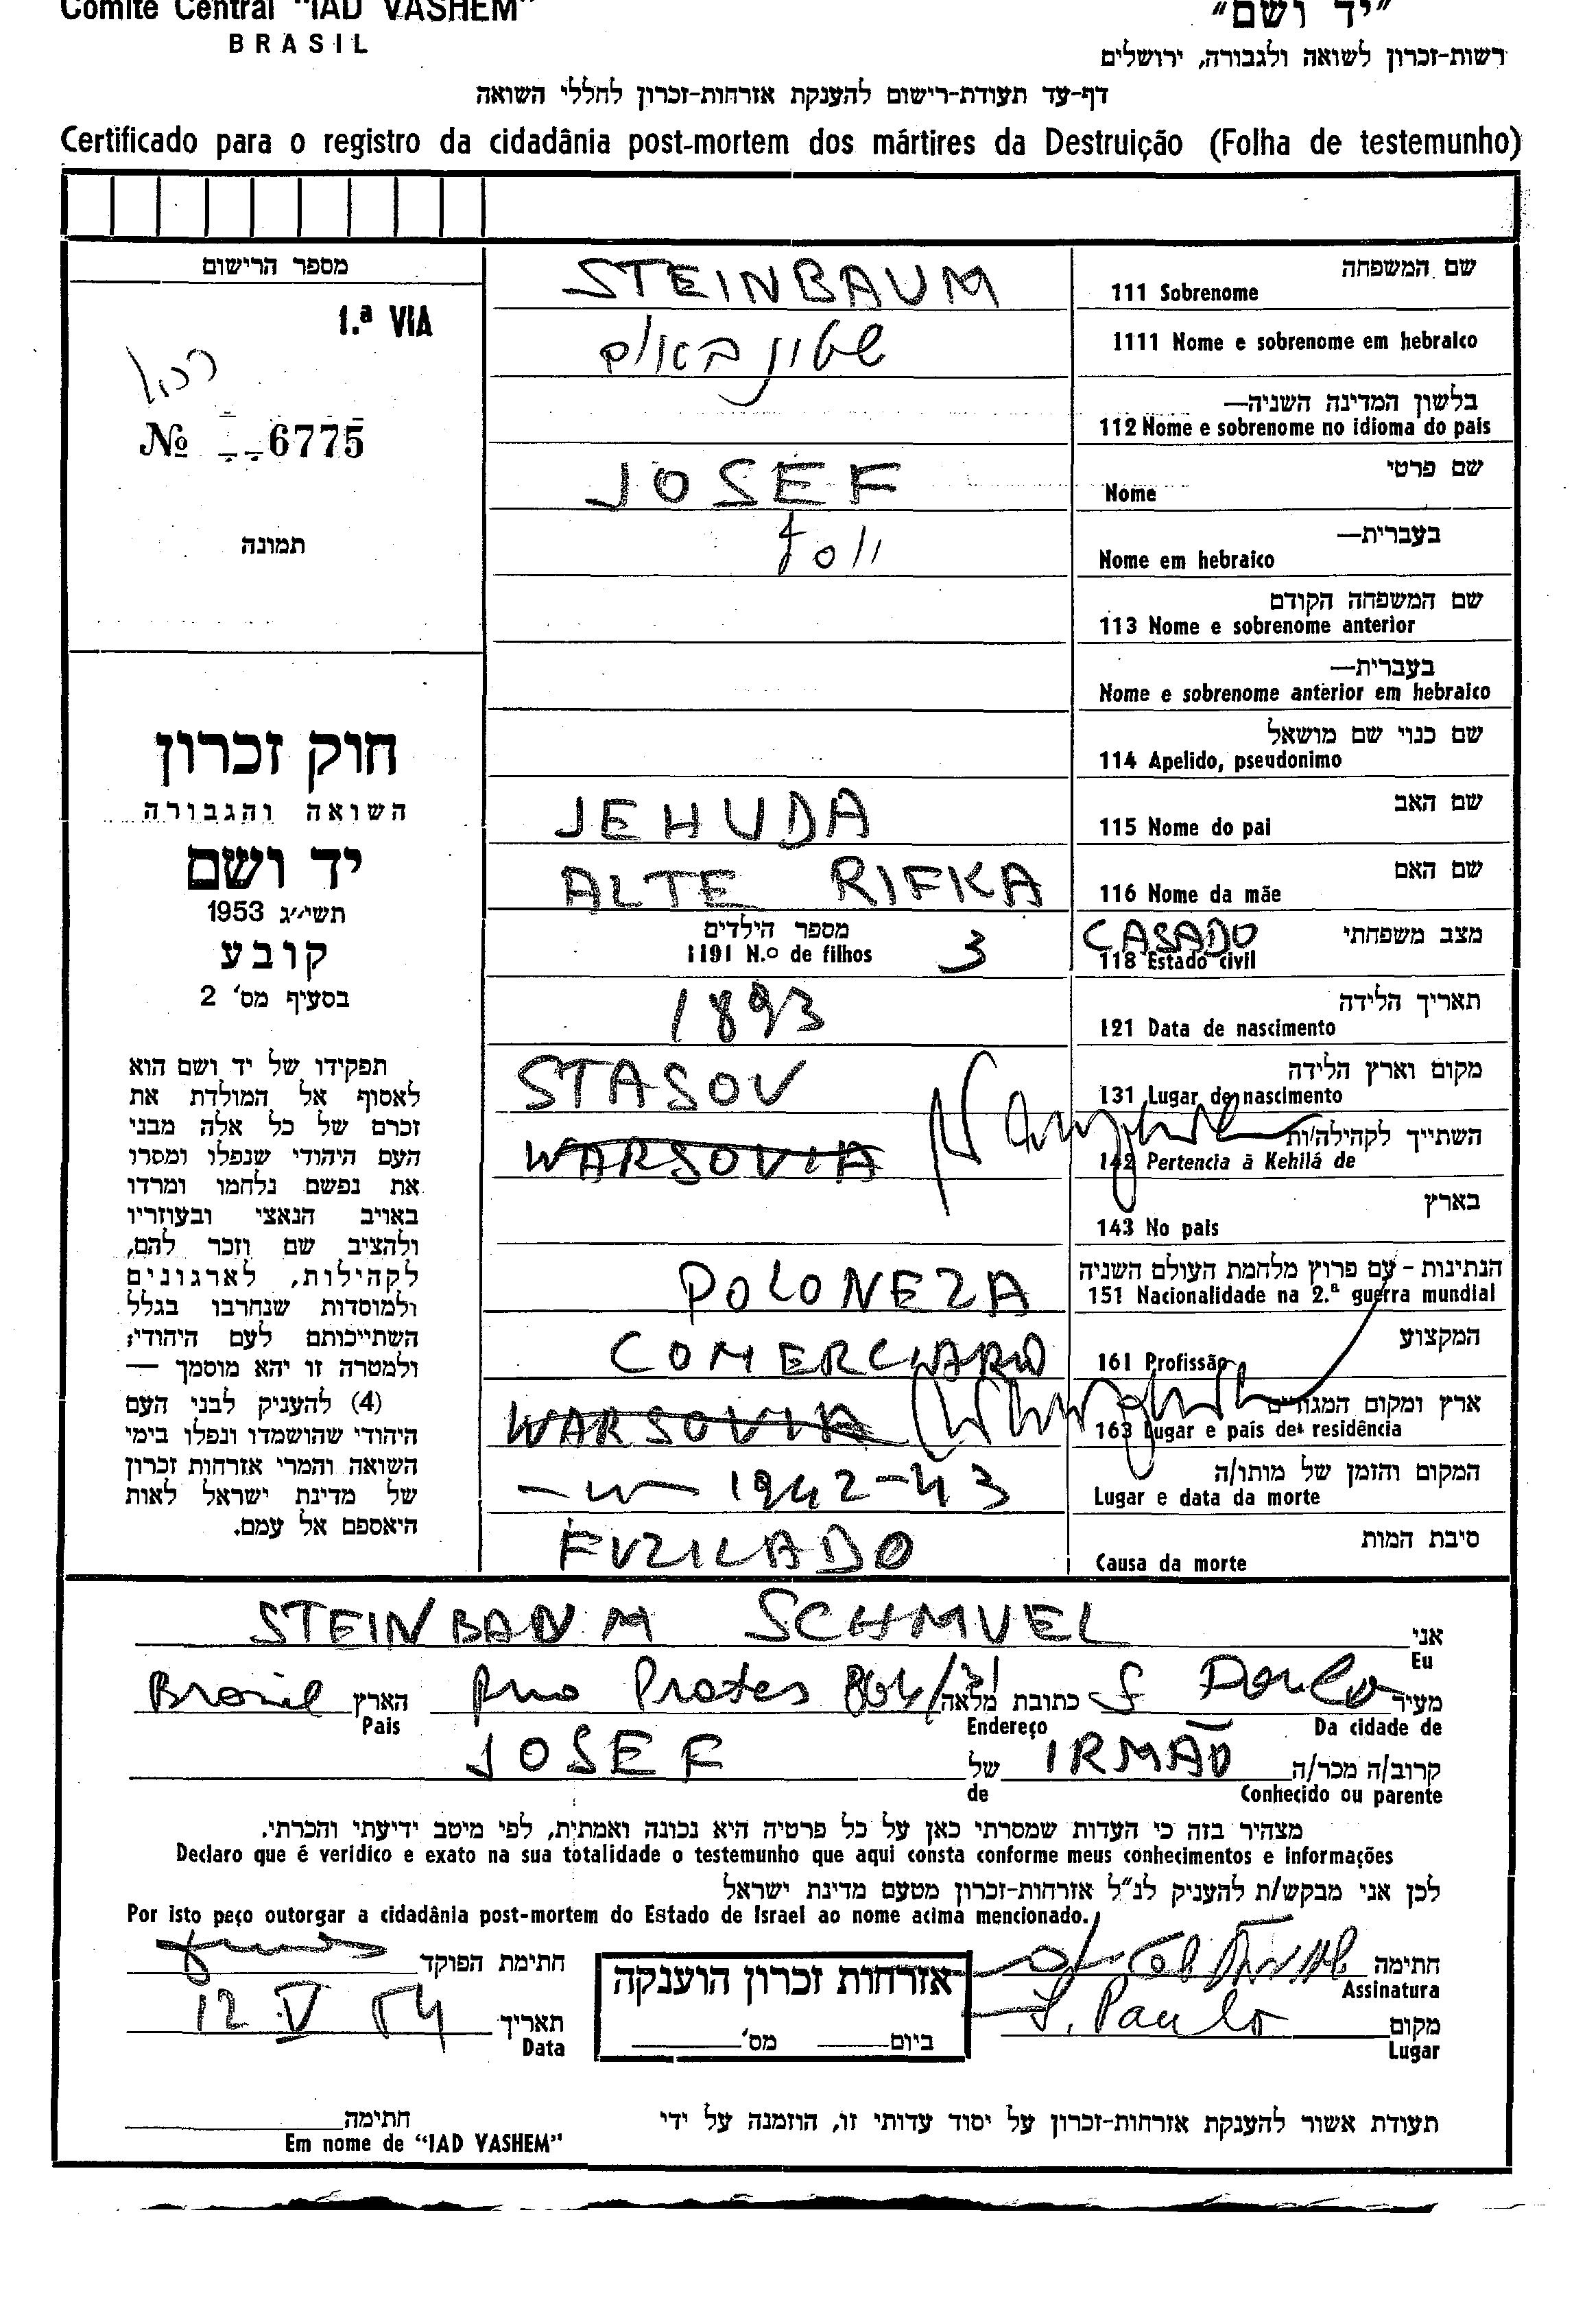 Comité Central "IAD VASHEM"
BRASIL
"יד ושם"
רשות-זכרון לשואה ולגבורה, ירושלים
דף-עד תעודת-רישום להענקת אזרחות-זכרון לחללי השואה
Certificado para o registro da cidadânia post-mortem dos mártires da Destruição (Folha de testemunho)
מספר הרישום
1.ª VIA
№ 6775
תמונה
חוק זכרון
השואה והגבורה
יד ושם
תשי״ג 1953
קובע
בסעיף מס' 2
תפקידו של יד ושם הוא
לאסוף אל המולדת את
זכרם של כל אלה מבני
העם היהודי שנפלו ומסרו
את נפשם נלחמו ומרדו
באויב הנאצי ובעוזריו
ולהציב שם וזכר להם,
לקהילות, לארגונים
ולמוסדות שנחרבו בגלל
השתייכותם לעם היהודי;
ולמטרה זו יהא מוסמך —
(4) להעניק לבני העם
היהודי שהושמדו ונפלו בימי
השואה והמרי אזרחות זכרון
של מדינת ישראל לאות
היאספם אל עמם.
שם המשפחה
111 Sobrenome STEINBAUM
1111 Nome e sobrenome em hebraico שטיינבאום
בלשון המדינה השניה—
112 Nome e sobrenome no idioma do pais
שם פרטי
Nome JOSEF
בעברית—
Nome em hebraico יוסף
שם המשפחה הקודם
113 Nome e sobrenome anterior
בעברית—
Nome e sobrenome anterior em hebraico
שם כנוי שם מושאל
114 Apelido, pseudonimo
שם האב
115 Nome do pai JEHUDA
שם האם
116 Nome da mãe ALTE RIFKA
מצב משפחתי
118 Estado civil CASADO
מספר הילדים
1191 N.º de filhos 3
תאריך הלידה
121 Data de nascimento 1893
מקום וארץ הלידה
131 Lugar de nascimento STASOV
השתייך לקהילה/ות
142 Pertencia à Kehilá de WARSOVIA
בארץ
143 No pais
הנתינות - עם פרוץ מלחמת העולם השניה
151 Nacionalidade na 2.ª guerra mundial POLONEZA
המקצוע
161 Profissão COMERCIARIO
ארץ ומקום המגורים
163 Lugar e país de residência WARSOVIA
המקום והזמן של מותו/ה
Lugar e data da morte 1942-43
סיבת המות
Causa da morte FUZILADO
אני
Eu STEINBAUM SCHMUEL
מעיר S Paulo כתובת מלאה Rua Prates הארץ Brasil
Da cidade de Endereço Pais
קרוב/ה מכר/ה IRMÃO של JOSEF
Conhecido ou parente de
מצהיר בזה כי העדות שמסרתי כאן על כל פרטיה היא נכונה ואמתית, לפי מיטב ידיעתי והכרתי.
Declaro que é veridico e exato na sua totalidade o testemunho que aqui consta conforme meus conhecimentos e informações
לכן אני מבקש/ת להעניק לנ״ל אזרחות-זכרון מטעם מדינת ישראל
Por isto peço outorgar a cidadânia post-mortem do Estado de Israel ao nome acima mencionado.
חתימה
Assinatura
חתימת הפוקד
אזרחות זכרון הוענקה
ביום מס'
מקום S. Paulo
Lugar
תאריך 12 V 54
Data
תעודת אשור להענקת אזרחות-זכרון על יסוד עדותי זו, הוזמנה על ידי
חתימה
Em nome de "IAD VASHEM"